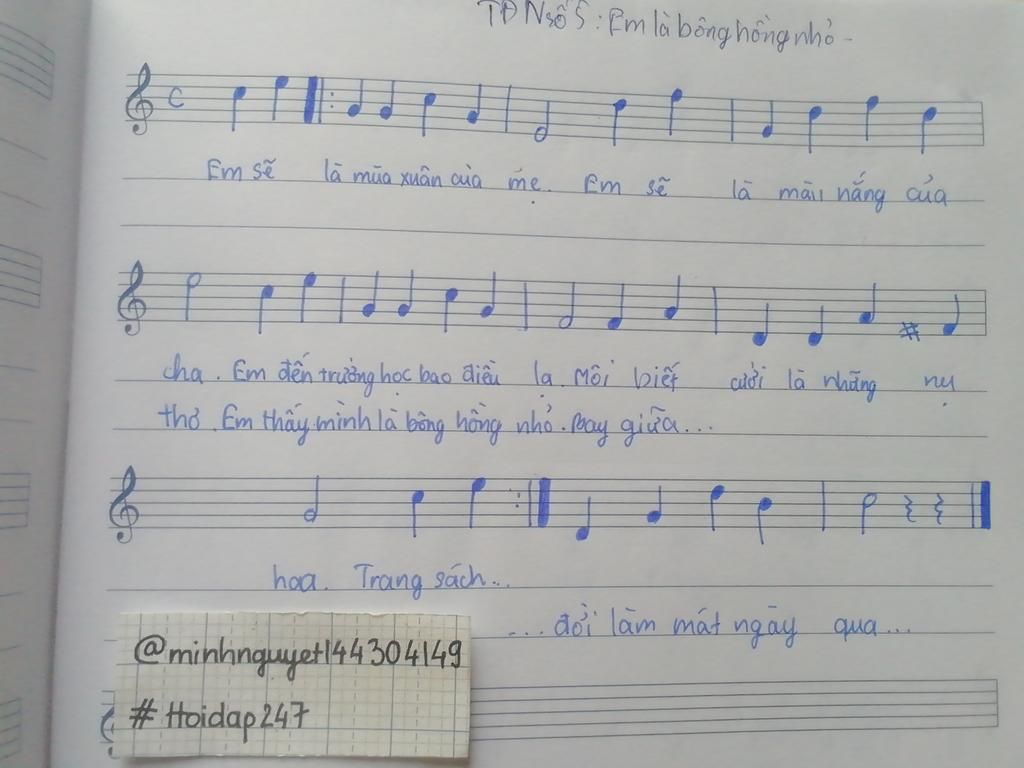 TĐN số 5: Em là bông hồng nhỏ -
C
Em sẽ là mùa xuân của mẹ. Em sẽ là màu nắng của
cha. Em đến trường học bao điều lạ. Môi biết cười là những nụ
thơ. Em thấy mình là bông hồng nhỏ. Bay giữa...
hoa. Trang sách...
... đổi làm mát ngày qua...
@minhnguyet144304149
# Hoidap247